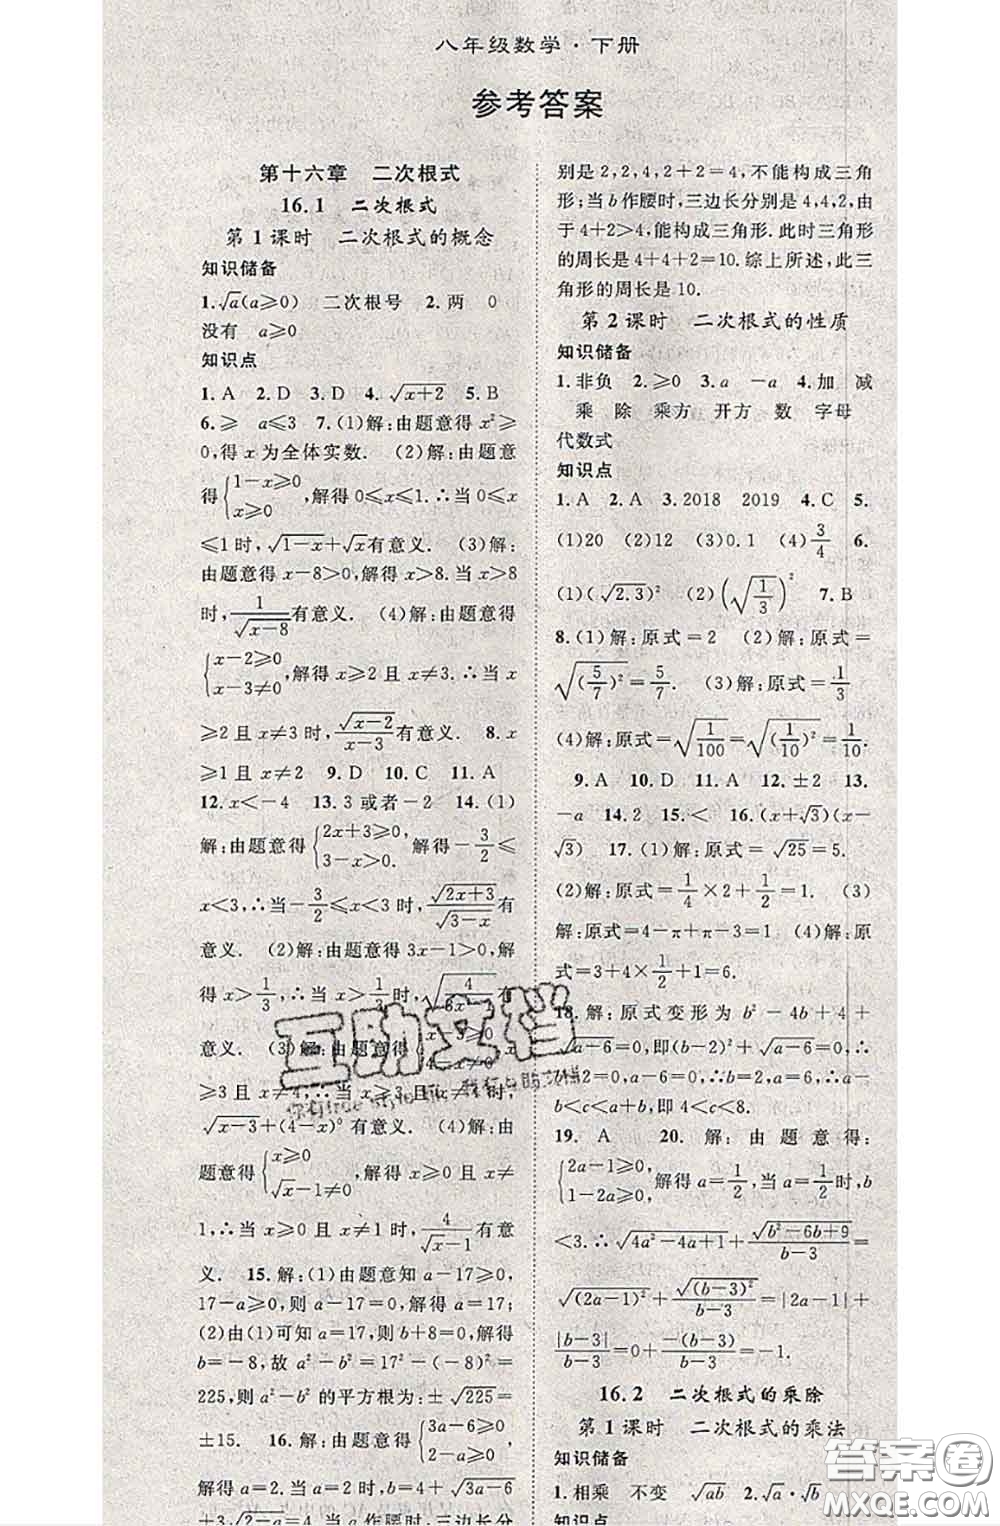 八年级数学·下册
参考答案
第十六章 二次根式
16.1 二次根式
第1课时 二次根式的概念
知识储备
1.√a(a≥0) 二次根号 2.两 0
没有 a≥0
知识点
1.A 2.D 3.D 4.√(x+2) 5.B
6.≥ a≤3 7.(1)解:由题意得 x²≥
0,得 x 为全体实数. (2)解:由题意
得{1-x≥0 x≥0,解得 0≤x≤1.∴当 0≤x
≤1时,√(1-x)+√x有意义. (3)解:
由题意得 x-8>0,解得 x>8.当 x>8
时,1/√(x-8)有意义. (4)解:由题意得
{x-2≥0 x-3≠0,解得 x≥2 且 x≠3.∴当 x
≥2 且 x≠3 时,√(x-2)/(x-3)有意义. 8.x
≥1 且 x≠2 9.D 10.C 11.A
12.x<-4 13.3 或者-2 14.(1)
解:由题意得{2x+3≥0, 3-x>0. 解得-3/2≤
x<3,∴当-3/2≤x<3 时,√(2x+3)/√(3-x)有
意义. (2)解:由题意得 3x-1>0,解
得 x>1/3,∴当 x>1/3时,
意义. (3)解:由题意得
≥3 且 x≠4.∴当 x≥3 且 x≠
√(x-3)+(4-x)⁰ 有意义. (4)解:由
题意得{x≥0 √x-1≠0,解得 x≥0 且 x≠
1,∴当 x≥0 且 x≠1 时,4/(√x-1)有意
义. 15.解:(1)由题意知 a-17≥0,
17-a≥0,则 a-17=0,解得 a=17;
(2)由(1)可知 a=17,则 b+8=0,解得
b=-8,故 a²-b²=17²-(-8)²=
225,则 a²-b² 的平方根为:±√225=
±15. 16.解:由题意得{3a-6≥0, 2-a≥0,
解得 a=2,当 a=2 时,b=4+√(3a-6)
+3√(2-a)=4.当 a 作腰时,三边长分
别是 2,2,4,2+2=4,不能构成三角
形;当 b 作腰时,三边长分别是 4,4,2,由
于 4+2>4,能构成三角形.此时三角形
的周长是 4+4+2=10.综上所述,此三
角形的周长是 10.
第2课时 二次根式的性质
知识储备
1.非负 2.≥0 3.a -a 4.加 减
乘 除 乘方 开方 数 字母
代数式
知识点
1.A 2.A 3.2018 2019 4.C 5.
(1)20 (2)12 (3)0.1 (4)3/4 6.
(1)(√2.3)² (2)(√(1/3))² 7.B
8.(1)解:原式=2 (2)解:原式=
√((5/7)²)=5/7. (3)解:原式=1/3
(4)解:原式=√(1/100)=√((1/10)²)=1/10.
9.A 10.D 11.A 12.±2 13.
-a 14.2 15.< 16.(x+√3)(x-
√3) 17.(1)解:原式=√25=5.
(2)解:原式=1/4×2+1/2=1. (3)
解:原式=4-π+π-3=1. (4)解:原
式=3+4×1/2+1=6.
18.解:原式变形为 b²-4b+4+
√(a-6)=0,即(b-2)²+√(a-6)=0,∴
b-2=0,a-6=0,∴b=2,a=6,∴a-
b<c<a+b,即 4<c<8.
19.A 20.解:由题意得:
{2a-1≥0, 1-2a≥0,解得 a=1/2,当 a=1/2时,b
<3.∴√(4a²-4a+1)+√(b²-6b+9)/(b-3)=
√((2a-1)²)+√((b-3)²)/(b-3)=|2a-1|+
|b-3|/(b-3)=0+-(b-3)/(b-3)=-1.
16.2 二次根式的乘除
第1课时 二次根式的乘法
知识储备
1.相乘 不变 √ab 2.√a·√b
知识点
互助文档
答案圈
MXQE.COM